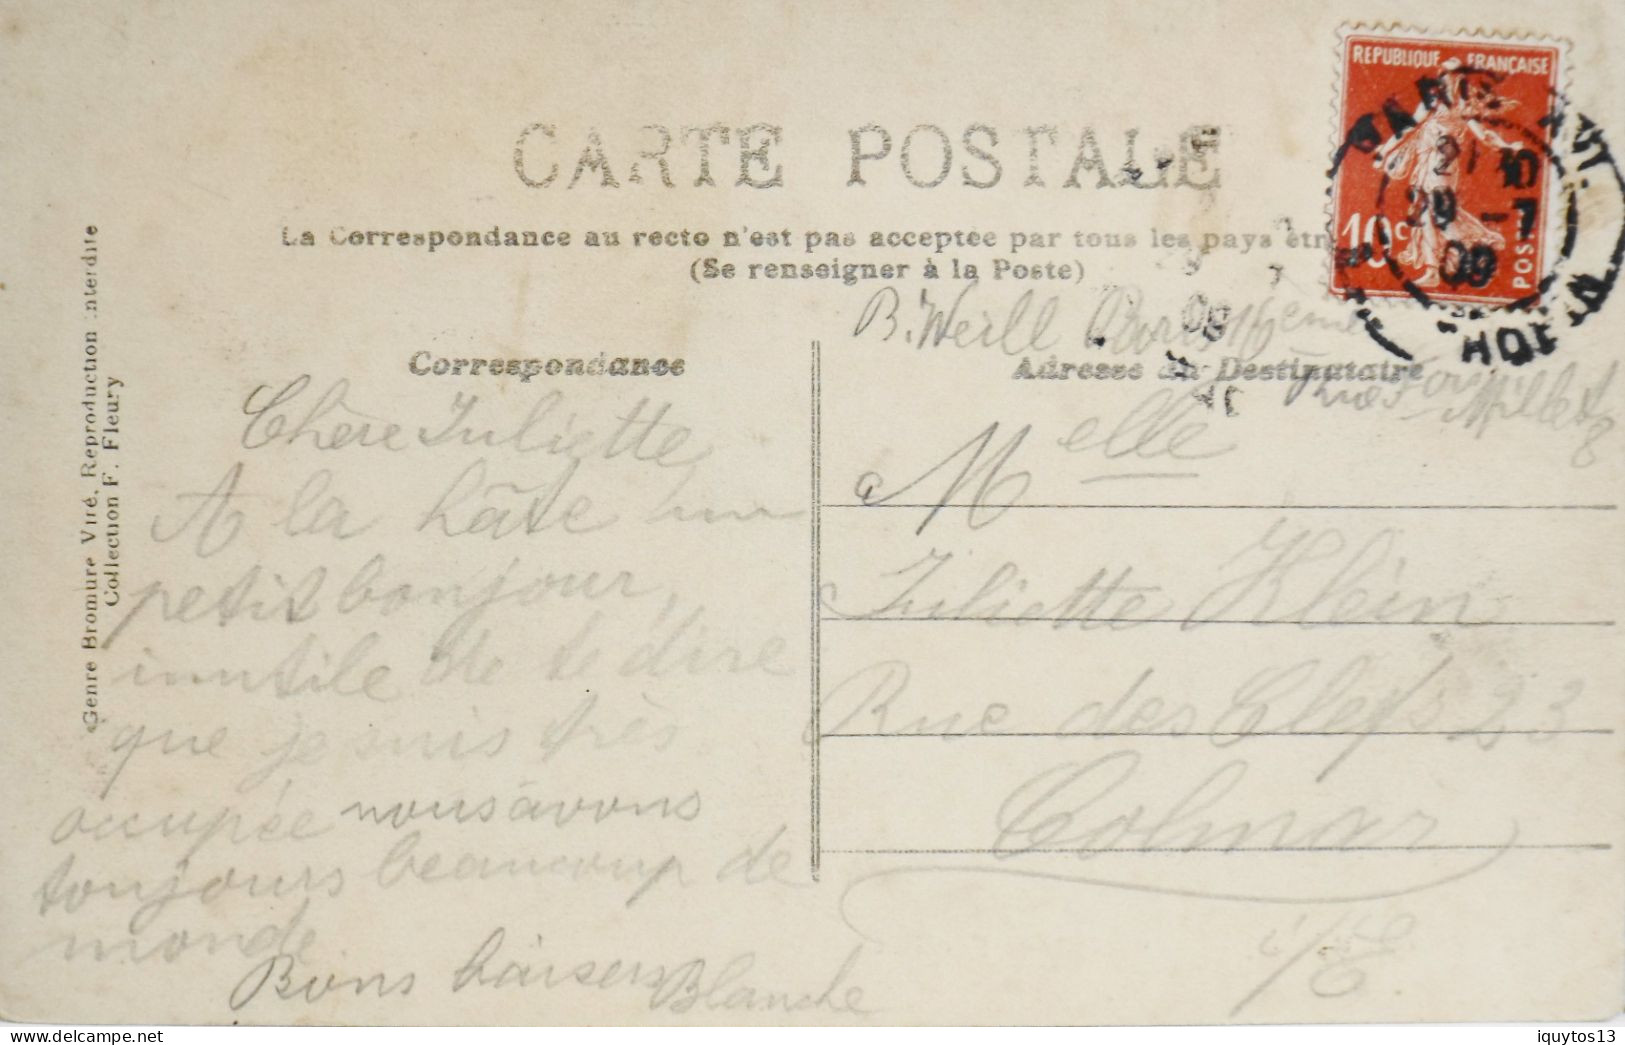 REPUBLIQUE FRANÇAISE
10c
POSTES
21 10
29 -7
09
CARTE POSTALE
La Correspondance au recto n'est pas acceptée par tous les pays étr
(Se renseigner à la Poste)
B. Weill Paris 16eme
Rue Millet 8
Correspondance
Adresse du Destinataire
Genre Bromure Viré, Reproduction interdite
Collection F. Fleury
Chère Juliette
A la hâte un
petit bonjour,
inutile de te dire
que je suis très
occupée nous avons
toujours beaucoup de
monde
Bons baisers Blanche
a Melle
Juliette Klein
Rue des Clefs 23
Colmar
i/E
delcampe.net
iquytos13